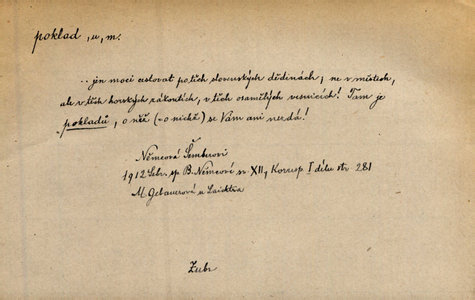 poklad, u, m.
.. jen moci cestovat po těch slovenských dědinách, ne v městech,
ale v těch horských zákoutích, v těch osamělých vesnicích! Tam je
pokladů, o něž (= o nichž) se Vám ani nezdá!
Němcová Šemberovi
1912 Sebr. sp. B. Němcové sv. XII, Koresp. I dílu str. 281
M. Gebauerová u Laichtra
Zubr